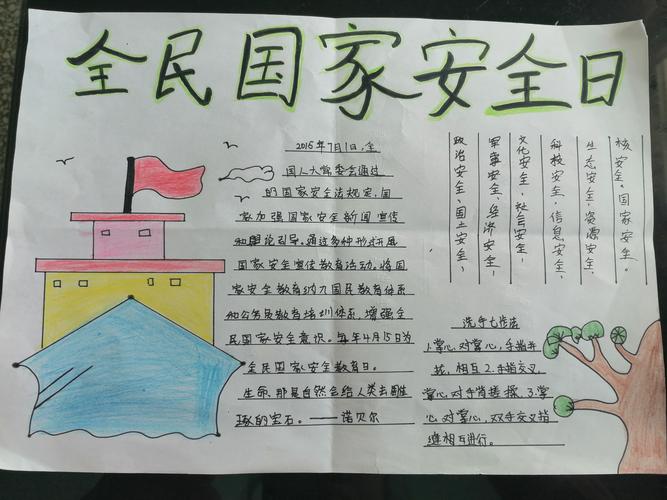 全民国家安全日
2015年7月1日,全
国人大常委会通过
的国家安全法规定,国
家加强国家安全新闻宣传
和舆论引导,通过多种形式开展
国家安全宣传教育活动。将国
家安全教育纳入国民教育体系
和公务员教育培训体系,增强全
民国家安全意识。每年4月15日为
全民国家安全教育日。
生命,那是自然会给人类去雕
琢的宝石。——诺贝尔
核安全。国家安全。
生态安全,资源安全,
科技安全,信息安全,
文化安全,社会安全,
军事安全,经济安全,
政治安全,国土安全,
洗手七步法
1.掌心,对掌心,手指并
拢,相互2.手指交叉,
掌心,对手背搓揉,3.掌
心,对掌心,双手交叉指
缝相互进行。